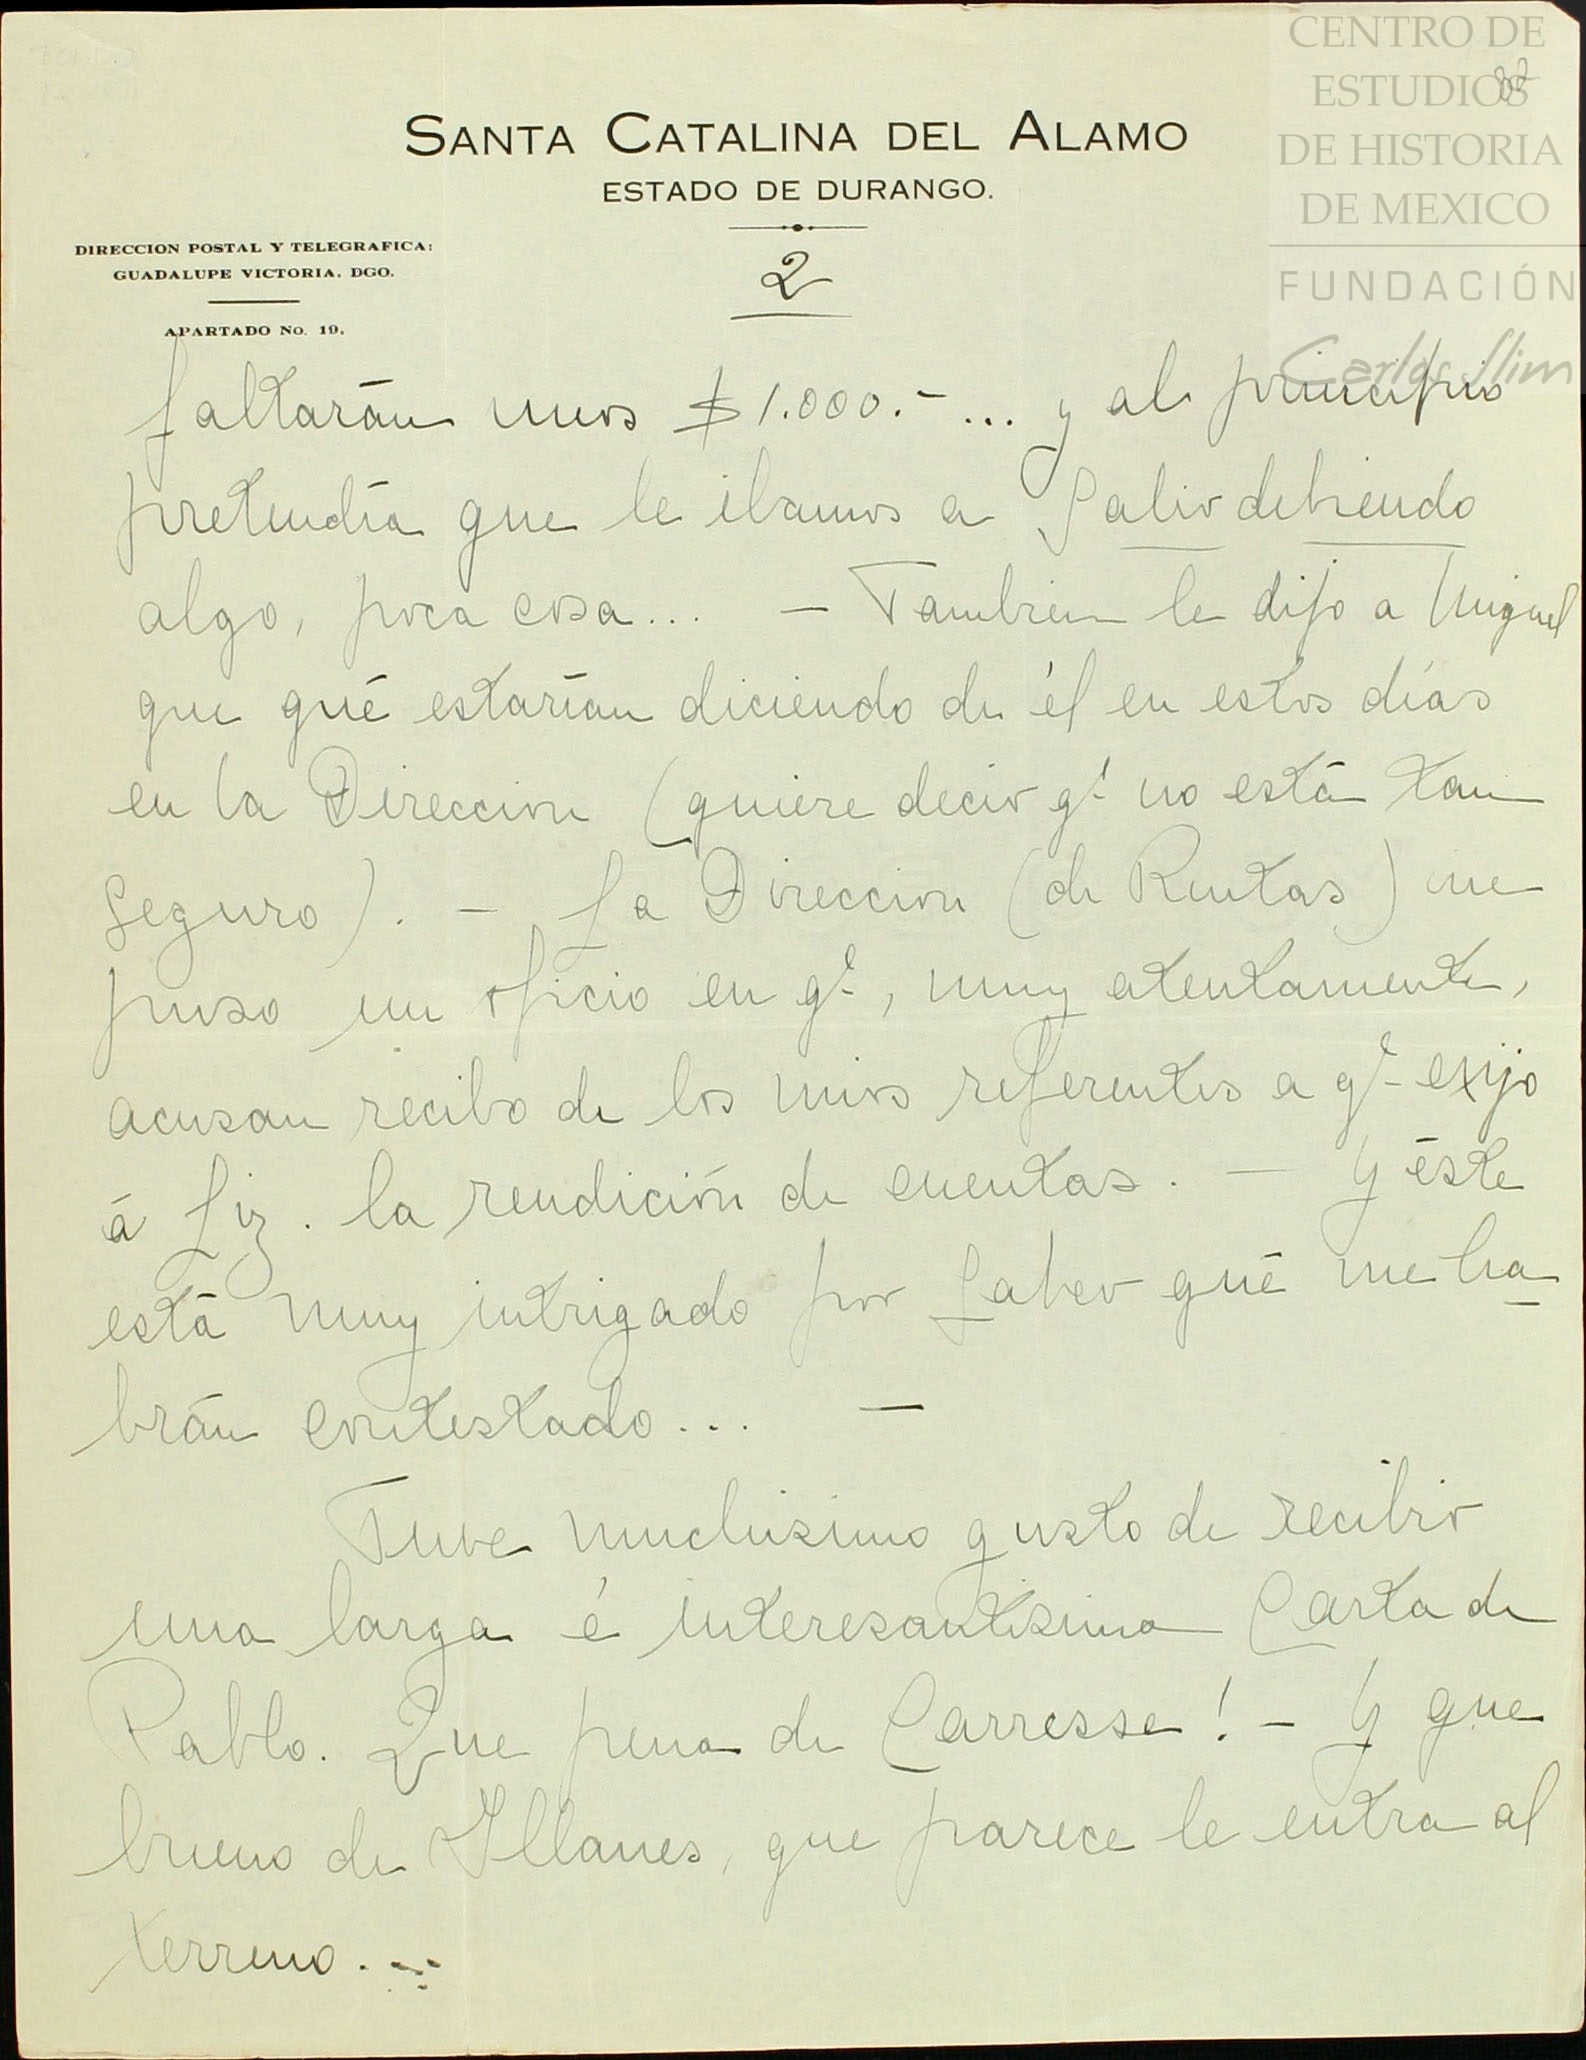 CENTRO DE
ESTUDIOS
DE HISTORIA
DE MEXICO
FUNDACIÓN
Carlos Slim
82
SANTA CATALINA DEL ALAMO
ESTADO DE DURANGO.
DIRECCION POSTAL Y TELEGRAFICA:
GUADALUPE VICTORIA, DGO.
APARTADO No. 19.
2
faltarán unos $1.000.-... y al principio
pretendía que le ibamos a salir debiendo
algo, poca cosa... - Tambien le dijo a Miguel
que qué estarían diciendo de él en estos días
en la Direccion (quiere decir qe no está tan
seguro). - La Direccion (de Rentas) me
puso un oficio en qe, muy atentamente,
acusan recibo de los mios referentes a qe exijo
á Liz. la rendición de cuentas. - Y éste
está muy intrigado por saber qué me ha
brán contestado... -
Tuve muchisimo gusto de recibir
una larga é interesantisima carta de
Pablo. Que pena de Carresse! - Y que
bueno de Illanes, que parece le entra al
terreno...